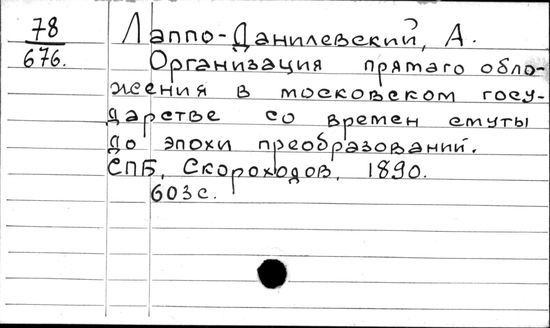 78 Лаппо-Данилевский, А.
676. Организация прямаго обло-
жения в московском госу-
дарстве со времен смуты
до эпохи преобразований.
СПБ, Скороходов, 1890.
603 с.